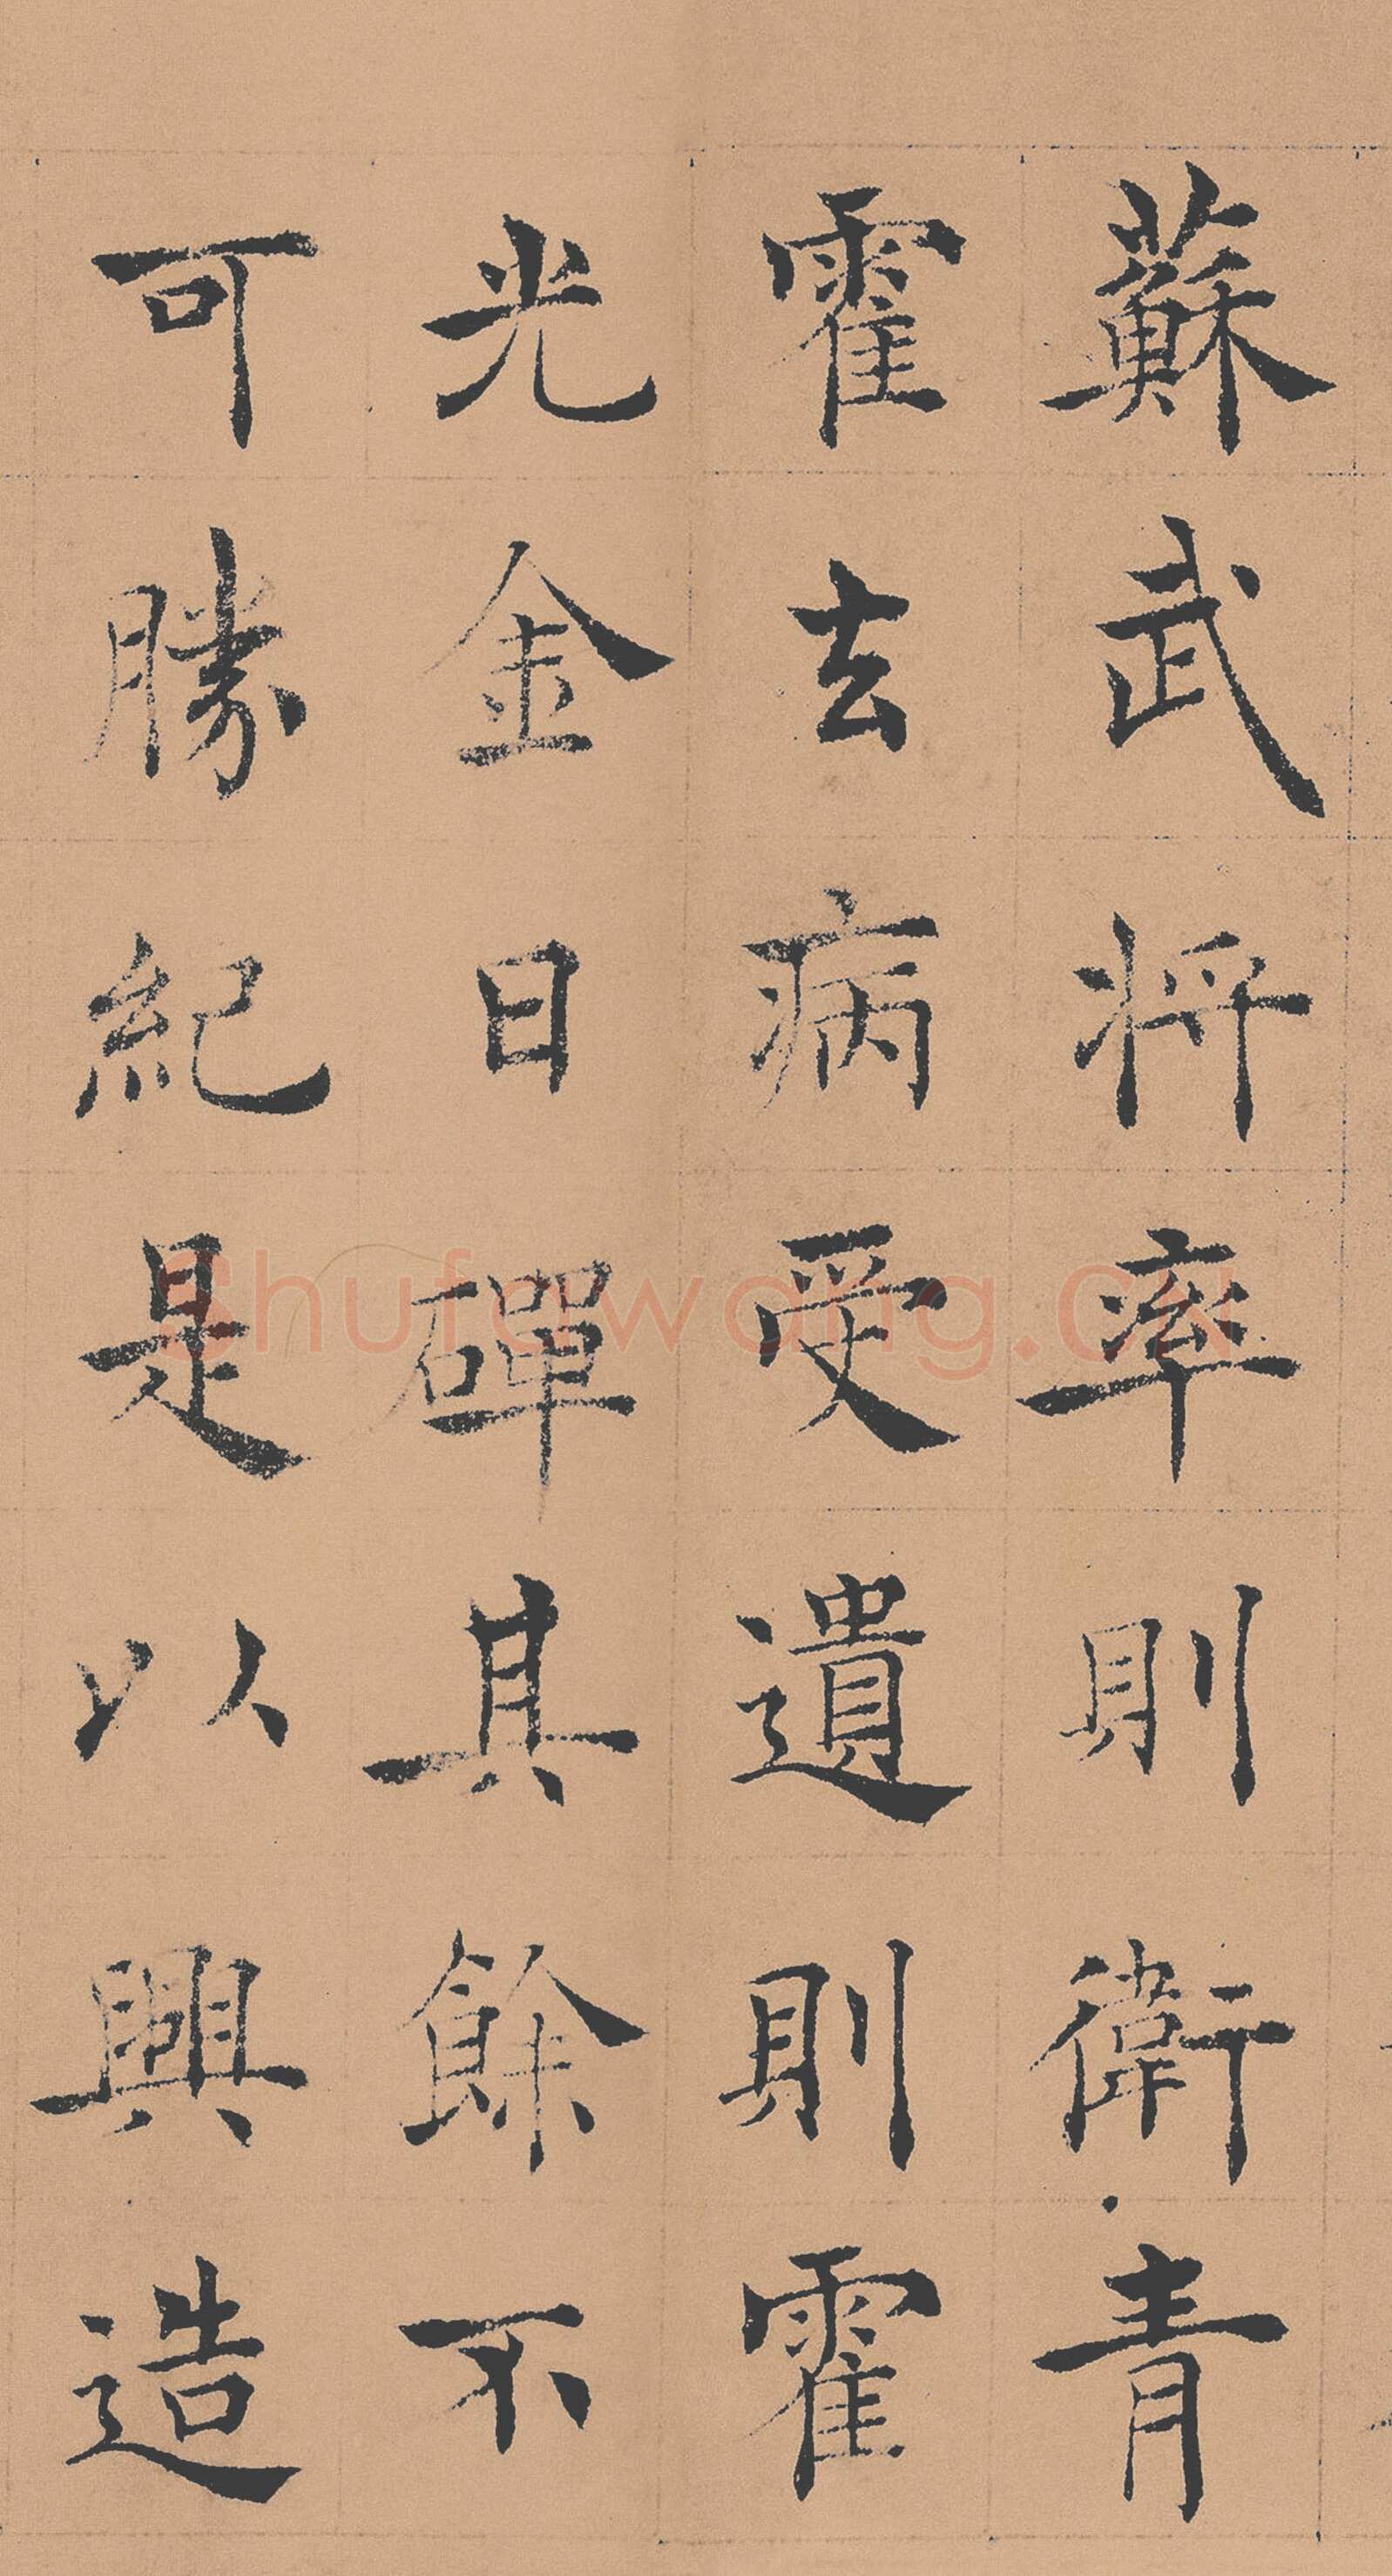 蘇武将率則衛青
霍去病受遺則霍
光金日磾其餘不
可勝紀是以興造
Shufawang.cn